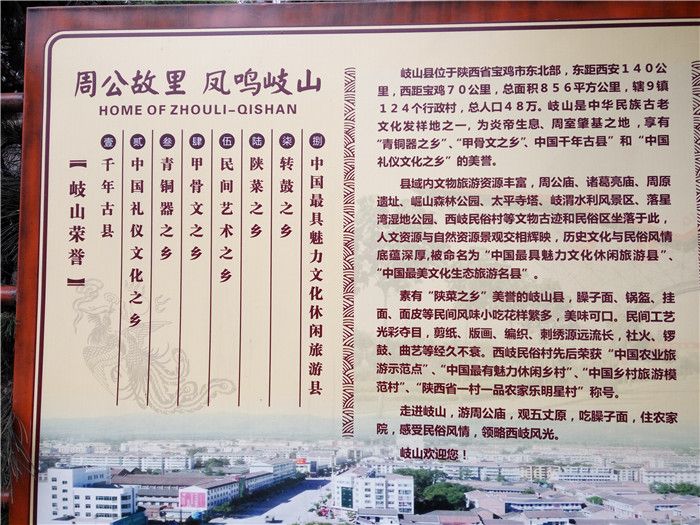 周公故里 凤鸣岐山
HOME OF ZHOULI-QISHAN
【岐山荣誉】
壹 千年古县
贰 中国礼仪文化之乡
叁 青铜器之乡
肆 甲骨文之乡
伍 民间艺术之乡
陆 陕菜之乡
柒 转鼓之乡
捌 中国最具魅力文化休闲旅游县
岐山县位于陕西省宝鸡市东北部，东距西安140公
里，西距宝鸡70公里，总面积856平方公里，辖9镇
124个行政村，总人口48万。岐山是中华民族古老
文化发祥地之一，为炎帝生息、周室肇基之地，享有
“青铜器之乡”、“甲骨文之乡”、中国千年古县”和“中国
礼仪文化之乡”的美誉。
县域内文物旅游资源丰富，周公庙、诸葛亮庙、周原
遗址、崛山森林公园、太平寺塔、岐渭水利风景区、落星
湾湿地公园、西岐民俗村等文物古迹和民俗区坐落于此，
人文资源与自然资源景观交相辉映，历史文化与民俗风情
底蕴深厚，被命名为“中国最具魅力文化休闲旅游县”、
“中国最美文化生态旅游名县”。
素有“陕菜之乡”美誉的岐山县，臊子面、锅盔、挂
面、面皮等民间风味小吃花样繁多，美味可口。民间工艺
光彩夺目，剪纸、版画、编织、刺绣源远流长，社火、锣
鼓、曲艺等经久不衰。西岐民俗村先后荣获“中国农业旅
游示范点”、“中国最有魅力休闲乡村”、“中国乡村旅游模
范村”、“陕西省一村一品农家乐明星村”称号。
走进岐山，游周公庙，观五丈原，吃臊子面，住农家
院，感受民俗风情，领略西岐风光。
岐山欢迎您！